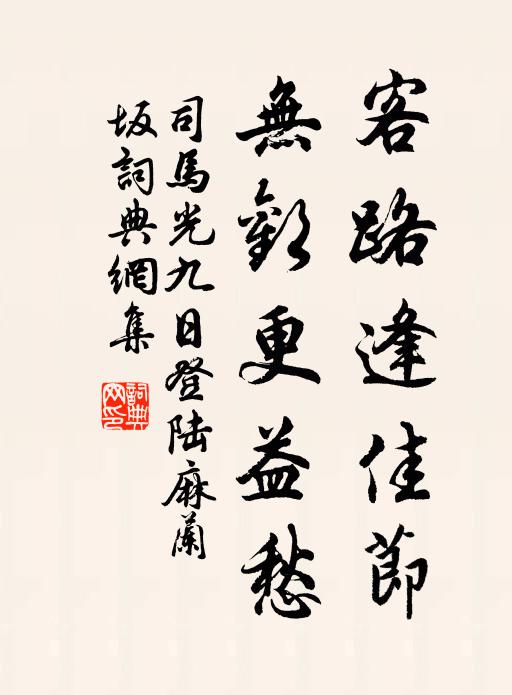 客路逢佳節
無歡更益愁
司馬光九日登陸麻蘭
坂詞典網集
詞典
网印